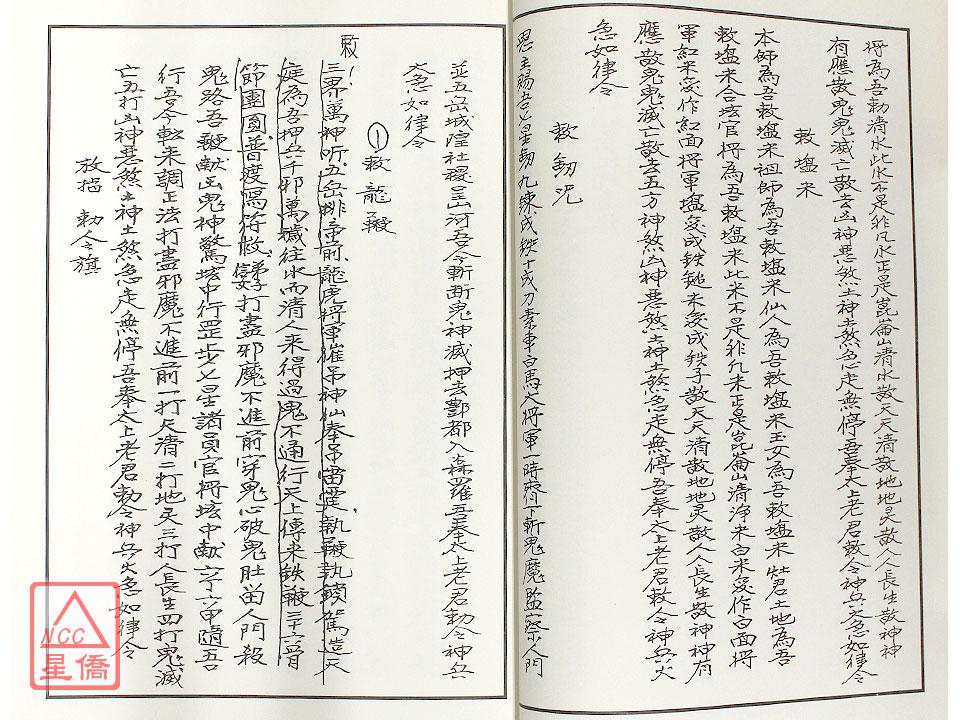 將為吾勅清水此水不是非凡水正是崑崙山清水散天天清散地地灵散人人長生散神神
有應散鬼鬼滅亡散去凶神惡煞土神土煞急走無停吾奉太上老君敕令神兵火急如律令
敕塩米
本師為吾敕塩米祖師為吾敕塩米仙人為吾敕塩米玉女為吾敕塩米土地為吾
敕塩米合坛官將為吾敕塩米此米不是非凡米正是崑崙山清淨米白米变作白面將
軍紅米变作紅面將軍塩变成鉄鎚米变成鉄子散天天清散地地灵散人人長生散神神有
應散鬼鬼滅亡散去五方神煞凶神惡煞土神土煞急走無停吾奉太上老君敕令神兵火
急如律令
敕劍咒
恩主賜吾七星劍九鍊成鉄十成刀素車白馬大將軍一時齊下斬鬼魔監察人門
並五岳城隍社稷山河吾今斬断鬼神滅押去酆都入森羅吾奉太上老君勅令神兵
火急如律令
敕
①敕龍鞭
三界萬神听五岳排前龍虎將軍催吊神仙奉吊雷霆執鞭執鎖駕造天
庭為吾押兵千邪萬穢往水而清人來得過鬼不通行天上傳来鉄鞭三十六
節團圓普度打盡邪魔不進前穿鬼心破鬼肚留人門殺
鬼路吾鞭献出鬼神驚坛中行罡步七星諸員官將坛中献六丁六甲隨吾
行吾今転来調正法打盡邪魔不進前一打天清二打地灵三打人長生四打鬼滅
亡五打凶神惡煞土神土煞急走無停吾奉太上老君勅令神兵火急如律令
放掿 勅令旗
NCC
星僑